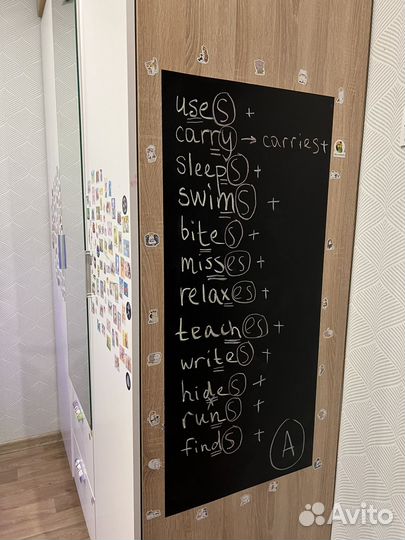 uses +
carry → carries +
sleeps +
swims +
bites +
misses +
relaxes +
teaches +
writes +
hides +
runs +
finds +
A
Avito